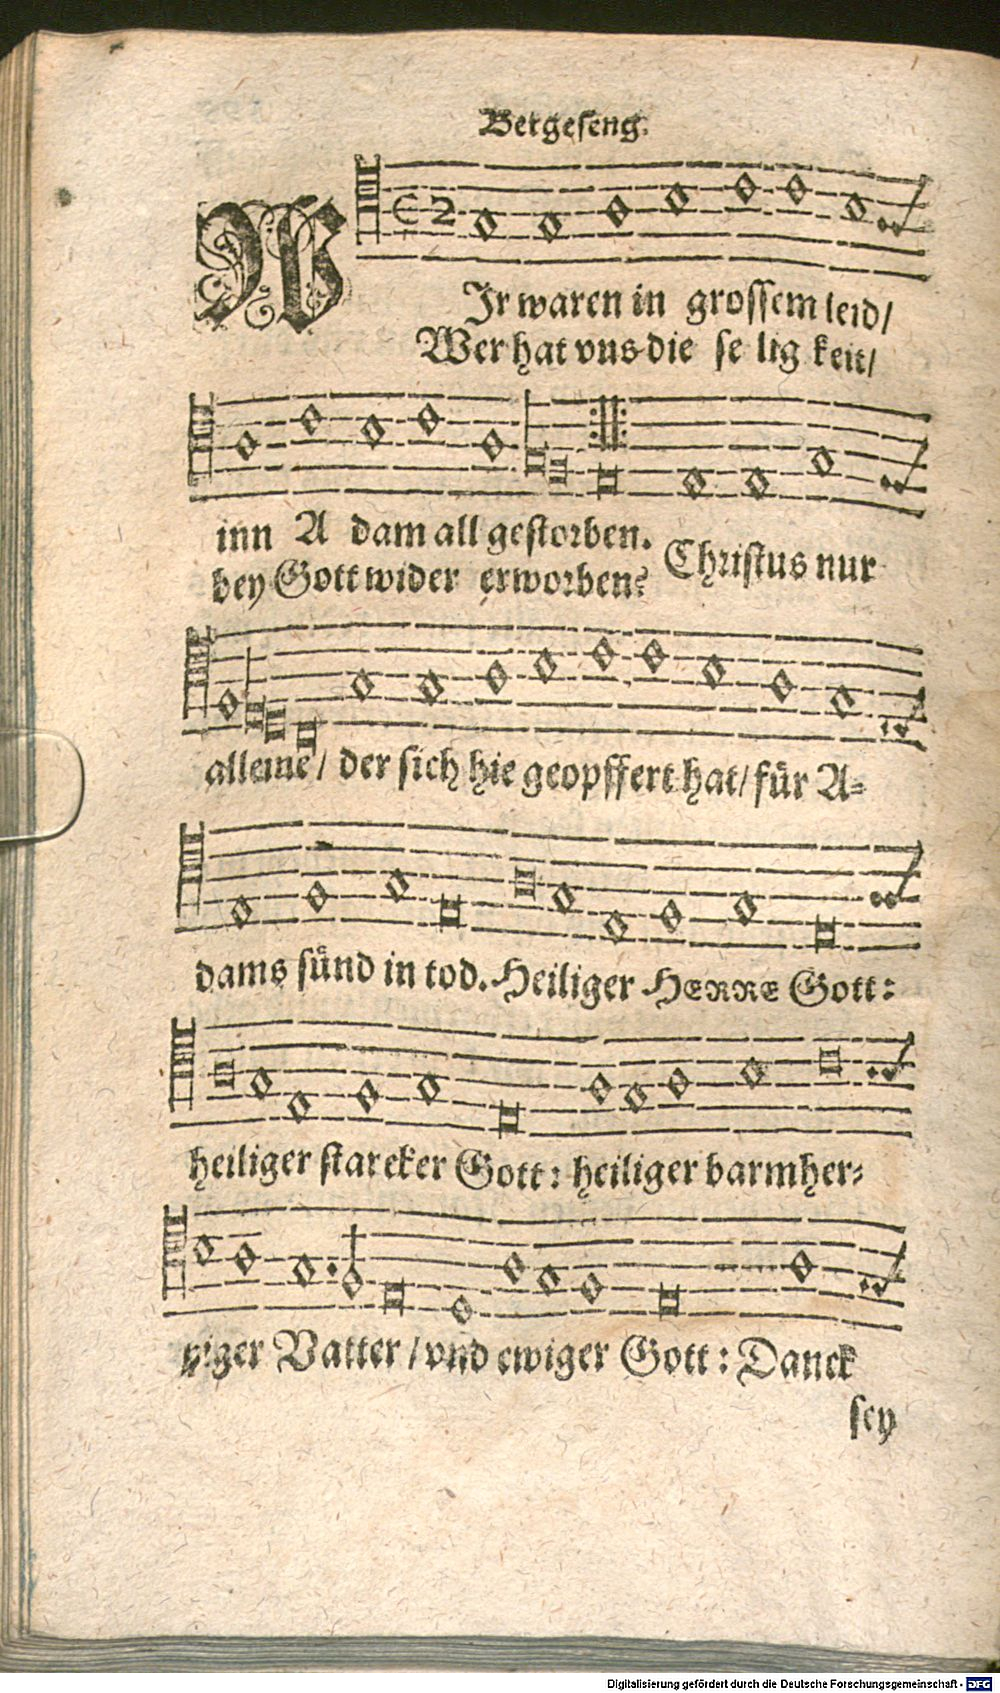 Betgeseng.
WJr waren in grossem leid/
Wer hat vns die se lig keit/
inn A dam all gestorben.
bey Gott wider erworben?
Christus nur
alleine/ der sich hie geopffert hat/ für A=
dams sünd in tod. Heiliger HERRE Gott:
heiliger starcker Gott: heiliger barmher=
tziger Vatter/ vnd ewiger Gott: Danck
sey
Digitalisierung gefördert durch die Deutsche Forschungsgemeinschaft - DFG